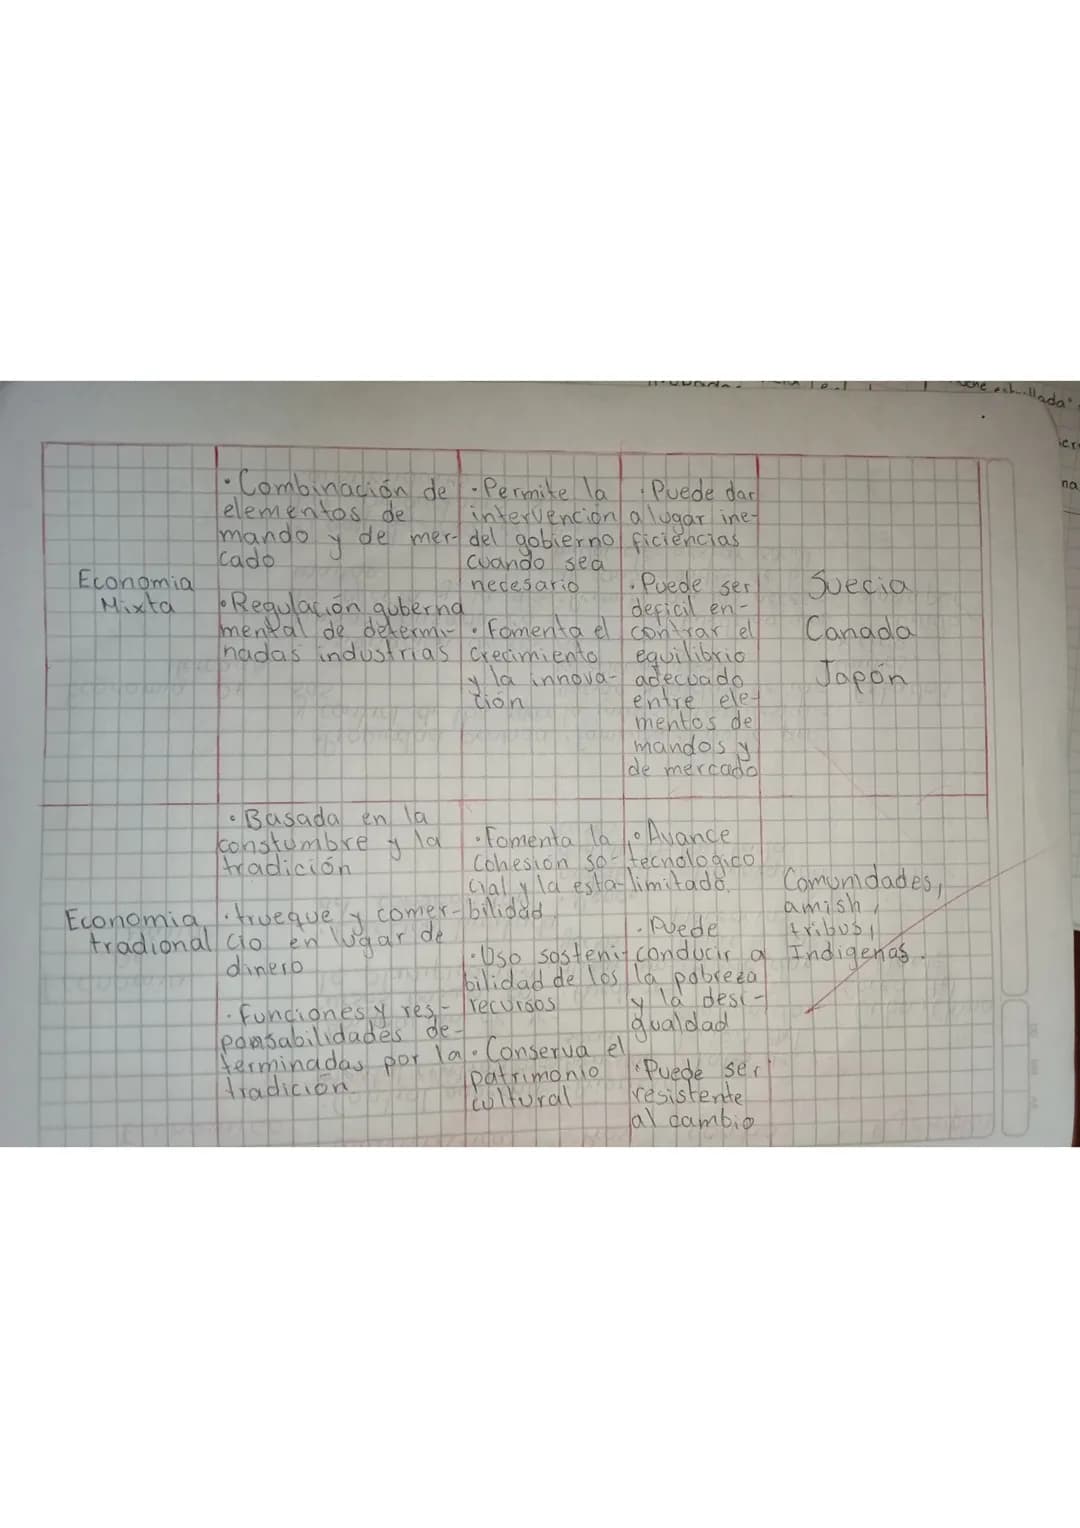 · Combinación de
elementos de
mando y de mer-
cado
· Regulación guberna
mental de determi-
nadas industrias
· Permite la
intervención
del gobierno
cuando sea
necesario
· Fomenta el
crecimiento
y la innova-
ción
· Puede dar
a lugar ine-
ficiencias
· Puede ser
deficil en-
contrar el
equilibrio
adecuado
entre ele-
mentos de
mandos y
de mercado
Economia
Mixta
Suecia
Canada
Japón
Economia
tradional
· Basada en la
constumbre y la
tradición
· trueque y comer-
cio en lugar de
dinero
· Funciones y res-
ponsabilidades de-
terminadas por la
tradición
· Fomenta la
Cohesión so-
cial y la esta-
bilidad
· Uso sosteni-
bilidad de los
recursos
· Conserva el
patrimonio
cultural
· Avance
tecnologico
limitado.
· Puede
conducir a
la pobreza
y la desi-
gualdad
· Puede ser
resistente
al cambio
Comunidades,
amish,
tribus,
Indigenas.